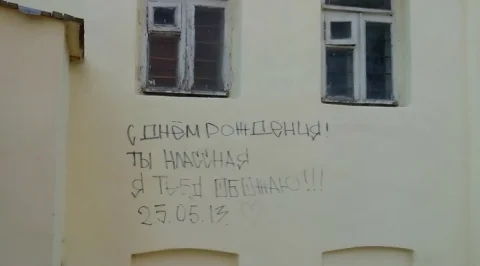 С ДНЁМ РОЖДЕНИЯ!
ТЫ КЛАССНАЯ
Я ТЕБЯ ОБОЖАЮ!!!
25.05.13